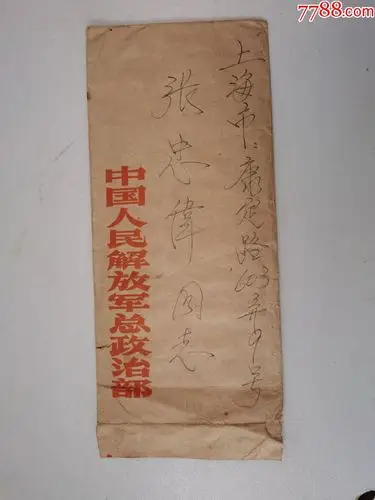 7788.com
上海市康定路 弄 号
张忠伟同志
中国人民解放军总政治部